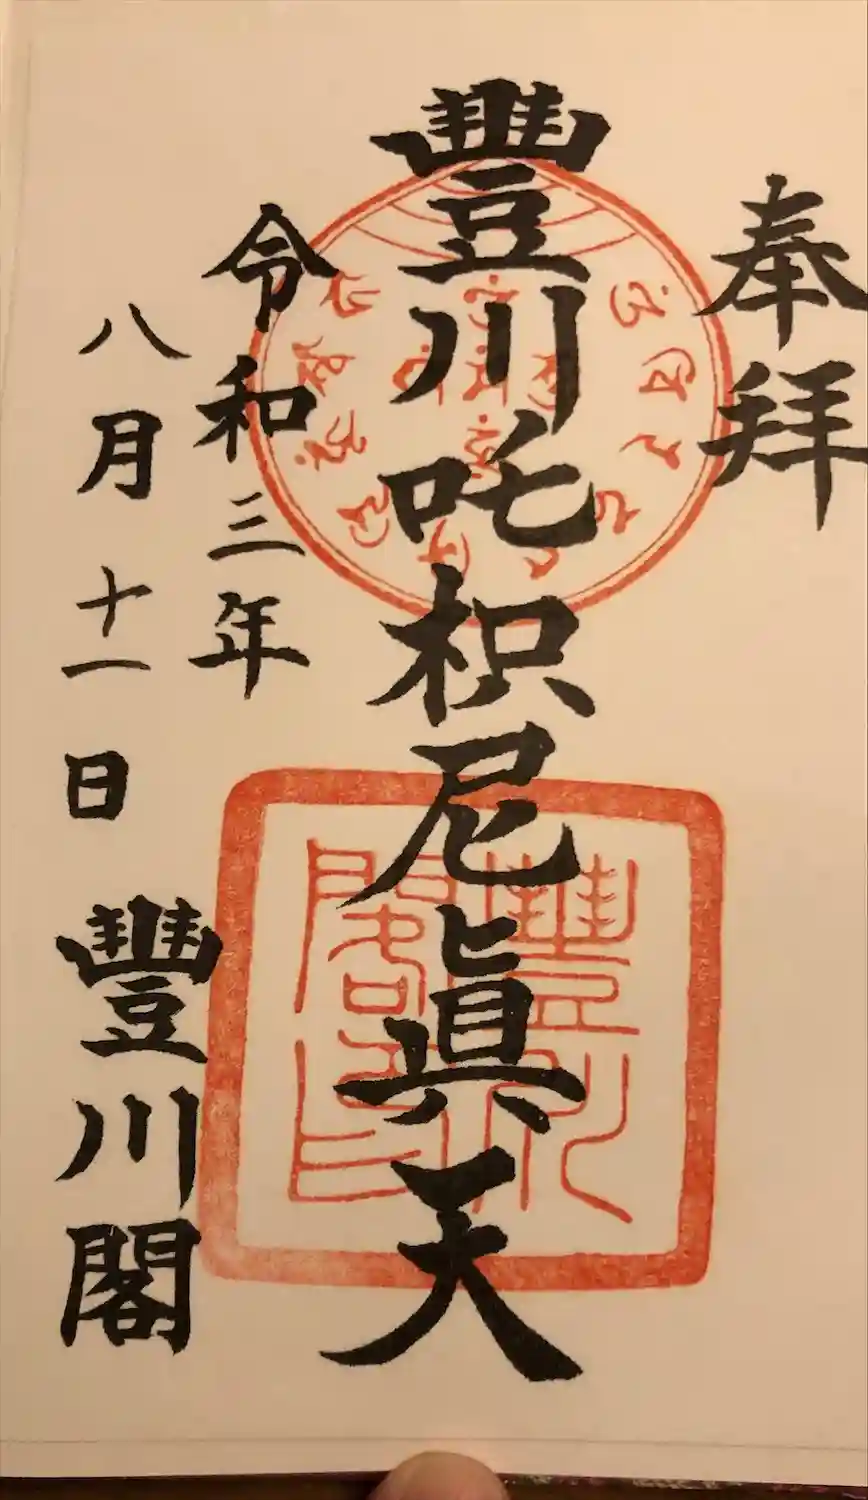 奉拜
豐川吒枳尼眞天
令和三年
八月十一日
豐川閣
豐川閣印